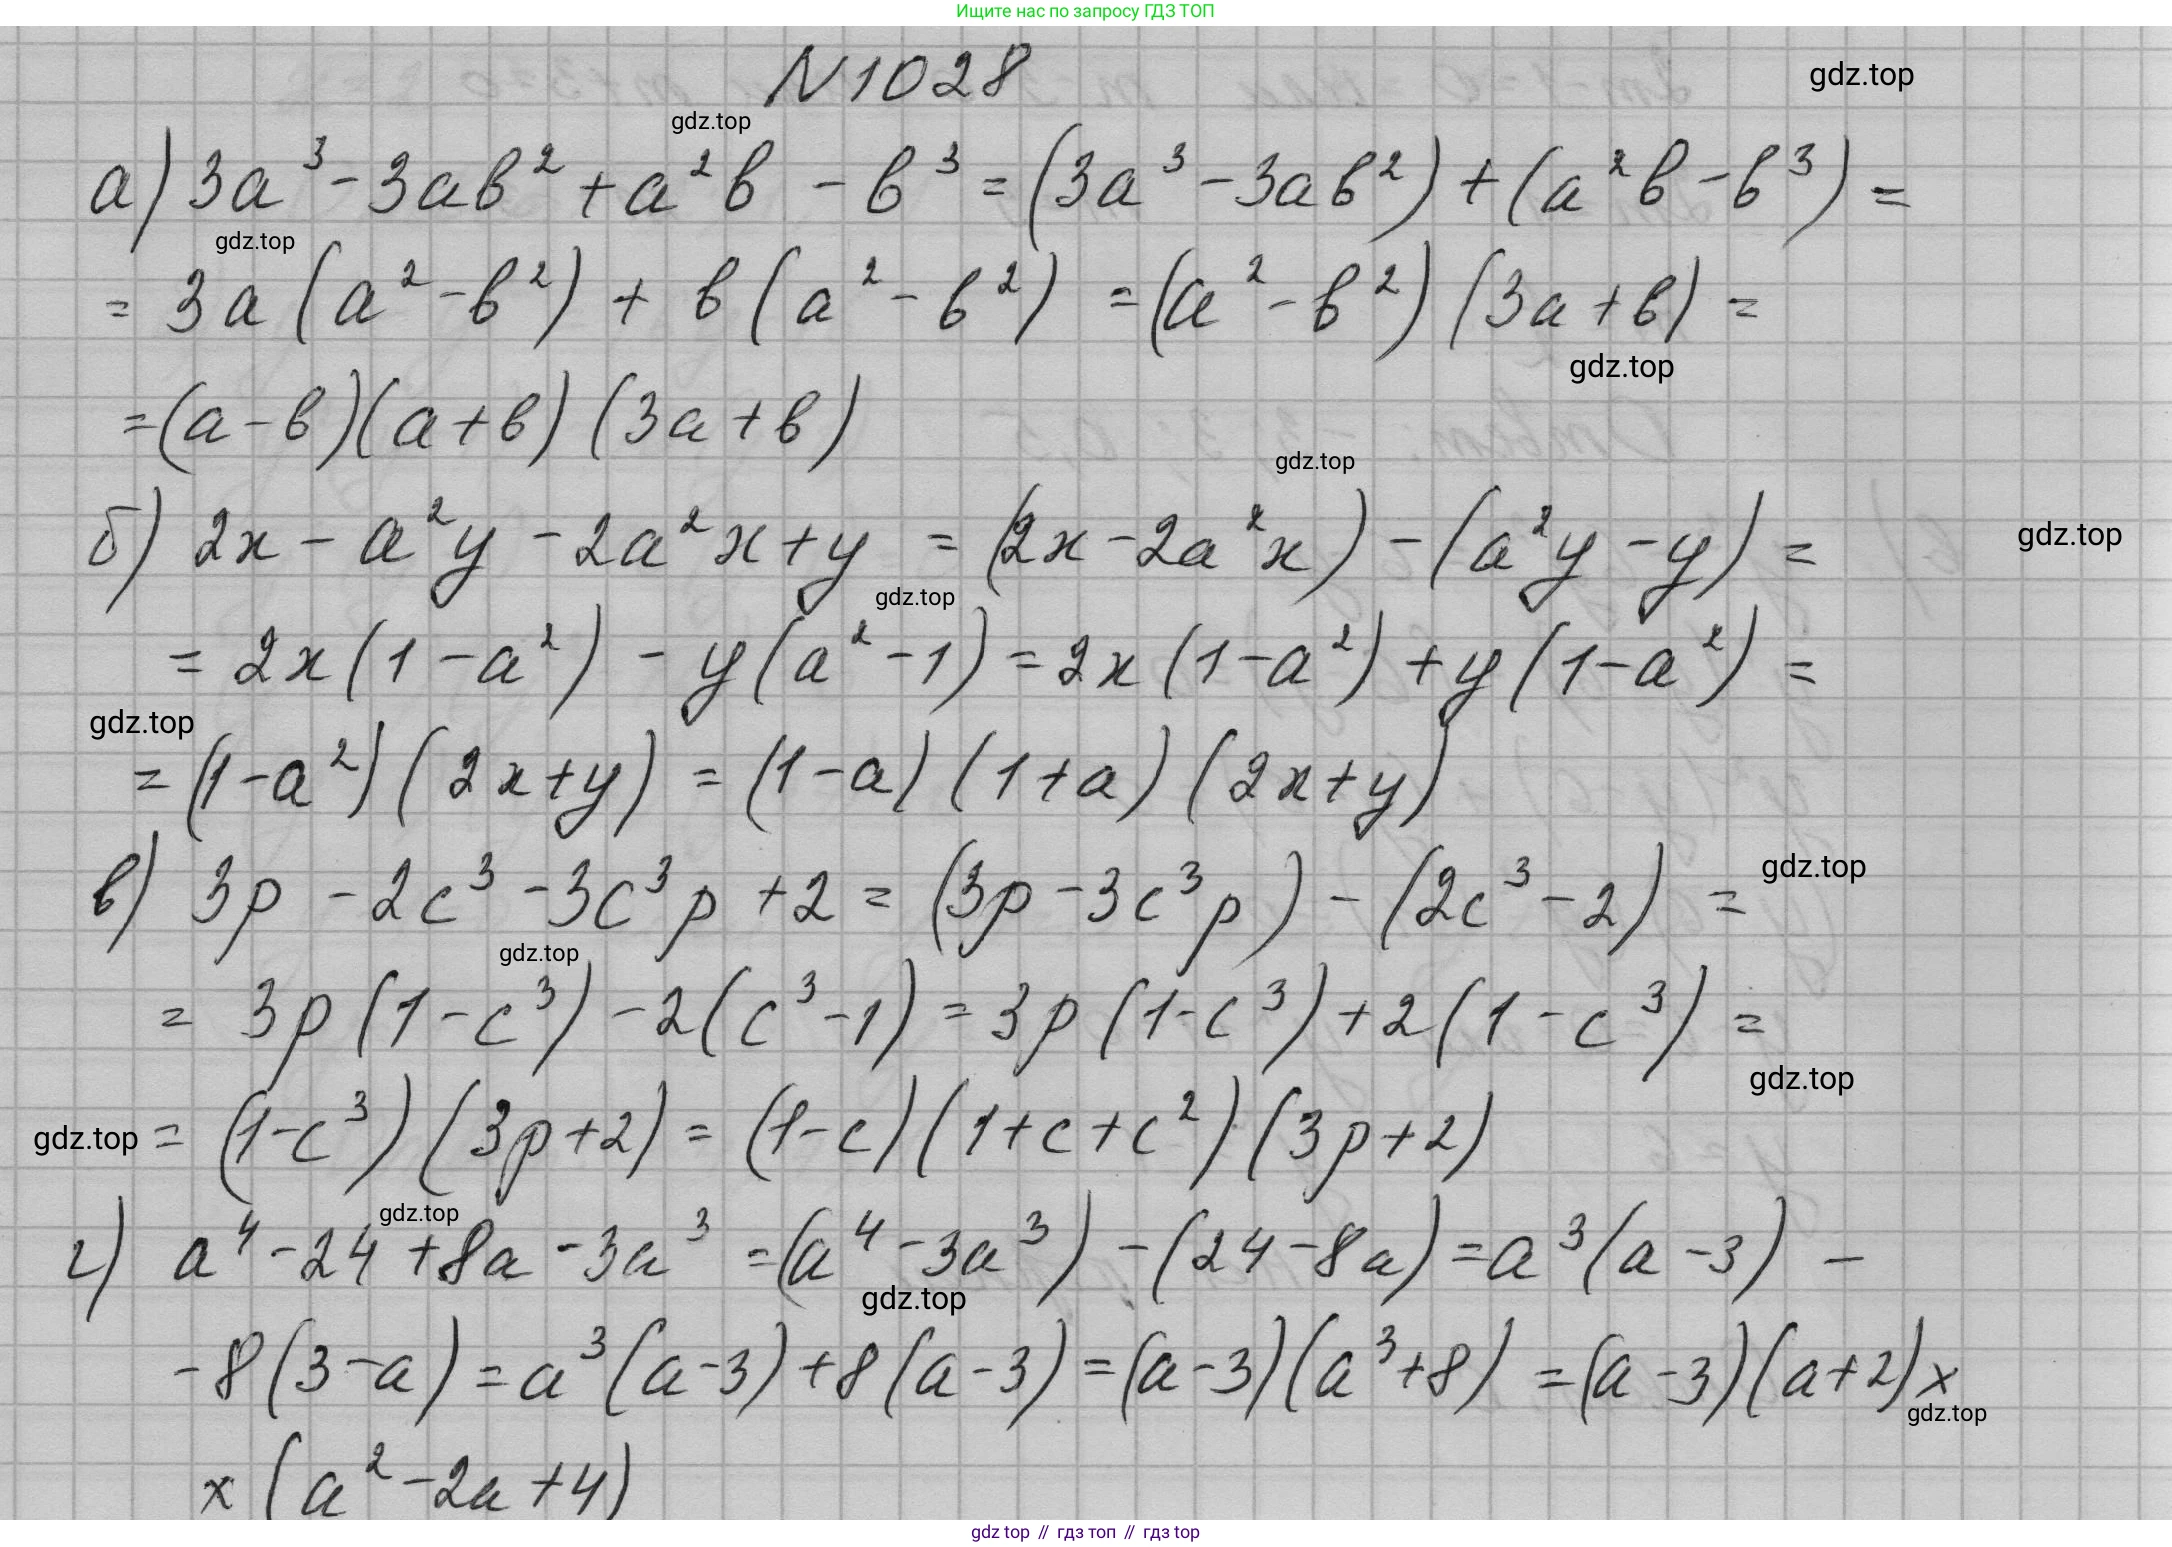 Ищите нас по запросу ГДЗ ТОП
N1028
gdz.top
gdz.top
а) 3a³ - 3ab² + a²b - b³ = (3a³ - 3ab²) + (a²b - b³) =
gdz.top
= 3a(a² - b²) + b(a² - b²) = (a² - b²)(3a + b) =
gdz.top
= (a - b)(a + b)(3a + b)
gdz.top
б) 2x - a²y - 2a²x + y = (2x - 2a²x) - (a²y - y) =
gdz.top
gdz.top
= 2x(1 - a²) - y(a² - 1) = 2x(1 - a²) + y(1 - a²) =
gdz.top
= (1 - a²)(2x + y) = (1 - a)(1 + a)(2x + y)
в) 3p - 2c³ - 3c³p + 2 = (3p - 3c³p) - (2c³ - 2) =
gdz.top
gdz.top
= 3p(1 - c³) - 2(c³ - 1) = 3p(1 - c³) + 2(1 - c³) =
gdz.top
gdz.top
= (1 - c³)(3p + 2) = (1 - c)(1 + c + c²)(3p + 2)
gdz.top
г) a⁴ - 24 + 8a - 3a³ = (a⁴ - 3a³) - (24 - 8a) = a³(a - 3) -
gdz.top
- 8(3 - a) = a³(a - 3) + 8(a - 3) = (a - 3)(a³ + 8) = (a - 3)(a + 2) x
gdz.top
x (a² - 2a + 4)
gdz top // гдз топ // гдз top